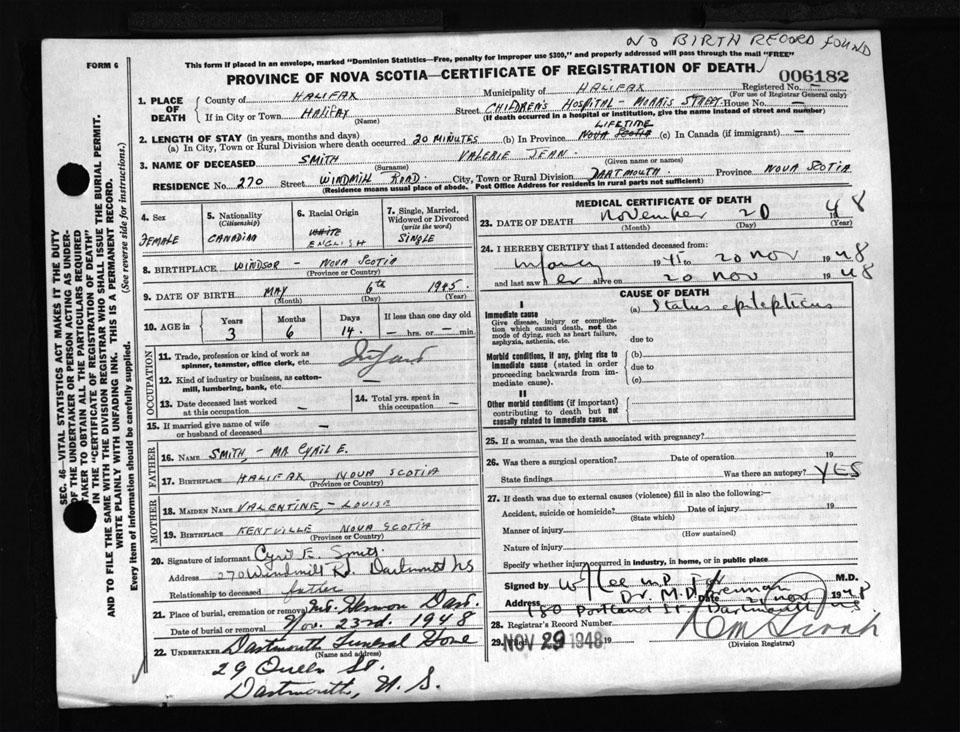 NO BIRTH RECORD FOUND
FORM 6
This form if placed in an envelope, marked "Dominion Statistics—Free, penalty for improper use $300," and properly addressed will pass through the mail "FREE"
PROVINCE OF NOVA SCOTIA—CERTIFICATE OF REGISTRATION OF DEATH
006182
Registered No.
(For use of Registrar General only)
1. PLACE OF DEATH
County of HALIFAX Municipality of HALIFAX
If in City or Town HALIFAX Street CHILDREN'S HOSPITAL - MORRIS STREET House No. —
(Name) (If death occurred in a hospital or institution, give the name instead of street and number)
2. LENGTH OF STAY (in years, months and days)
(a) In City, Town or Rural Division where death occurred 20 MINUTES (b) In Province LIFETIME NOVA SCOTIA (c) In Canada (if immigrant) —
3. NAME OF DECEASED SMITH VALERIE JEAN
(Surname) (Given name or names)
RESIDENCE No. 270 Street WINDMILL ROAD City, Town or Rural Division DARTMOUTH Province NOVA SCOTIA
(Residence means usual place of abode. Post Office Address for residents in rural parts not sufficient)
4. Sex
FEMALE
5. Nationality
(Citizenship)
CANADIAN
6. Racial Origin
WHITE
ENGLISH
7. Single, Married, Widowed or Divorced
(write the word)
SINGLE
8. BIRTHPLACE WINDSOR - NOVA SCOTIA
(Province or Country)
9. DATE OF BIRTH MAY 6th 1945.
(Month) (Day) (Year)
10. AGE in
Years Months Days If less than one day old
3 6 14 — hrs. or — min.
OCCUPATION
11. Trade, profession or kind of work as spinner, teamster, office clerk, etc. Infant
12. Kind of industry or business, as cotton-mill, lumbering, bank, etc. —
13. Date deceased last worked at this occupation —
14. Total yrs. spent in this occupation —
15. If married give name of wife or husband of deceased —
FATHER
16. NAME SMITH - MR. CYRIL E.
17. BIRTHPLACE HALIFAX NOVA SCOTIA
(Province or Country)
MOTHER
18. MAIDEN NAME VALENTINE - LOUISE
19. BIRTHPLACE KENTVILLE NOVA SCOTIA
(Province or Country)
20. Signature of informant Cyril E. Smith
Address 270 Windmill Rd. Dartmouth NS
Relationship to deceased father
21. Place of burial, cremation or removal Mt. Hermon Dart.
Date of burial or removal Nov. 23rd. 1948
22. UNDERTAKER Dartmouth Funeral Home
(Name and address)
29 Queen St.
Dartmouth, N. S.
MEDICAL CERTIFICATE OF DEATH
23. DATE OF DEATH November 20 1948
(Month) (Day) (Year)
24. I HEREBY CERTIFY that I attended deceased from:
infancy 19 to 20 nov 1948
and last saw her alive on 20 nov 1948
CAUSE OF DEATH
I
Immediate cause (a) Status epilepticus
Give disease, injury or complication which caused death, not the mode of dying, such as heart failure, asphyxia, asthenia, etc.
due to
Morbid conditions, if any, giving rise to immediate cause (stated in order proceeding backwards from immediate cause).
(b)
due to
(c)
II
Other morbid conditions (if important) contributing to death but not causally related to immediate cause.
25. If a woman, was the death associated with pregnancy?
26. Was there a surgical operation? Date of operation 19
State findings Was there an autopsy? YES
27. If death was due to external causes (violence) fill in also the following:—
Accident, suicide or homicide? Date of injury 19
(State which)
Manner of injury
(How sustained)
Nature of injury
Specify whether injury occurred in industry, in home, or in public place
Signed by W Lee M.D. For M.D.
Dr. M.D. Brennan
Address 180 Portland St. Dartmouth NS Date 21 nov 1948
28. Registrar's Record Number
29. Filed NOV 29 1948
(Division Registrar)
SEC. 46—VITAL STATISTICS ACT MAKES IT THE DUTY
OF THE UNDERTAKER OR PERSON ACTING AS UNDER-
TAKER TO OBTAIN ALL THE PARTICULARS REQUIRED
IN THE "CERTIFICATE OF REGISTRATION OF DEATH"
AND TO FILE THE SAME WITH THE DIVISION REGISTRAR WHO SHALL ISSUE THE BURIAL PERMIT.
WRITE PLAINLY WITH UNFADING INK. THIS IS A PERMANENT RECORD.
Every item of information should be carefully supplied. (See reverse side for instructions.)